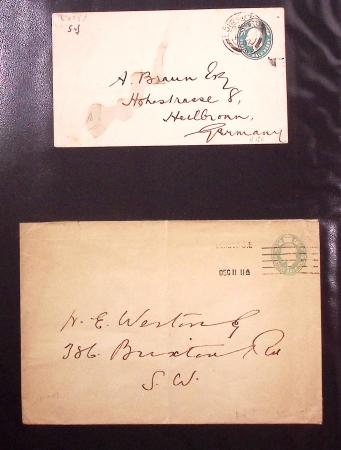 A Braun Esq
Hohestrasse 8,
Heilbronn,
Germany
DEC 11 11
H. E. Weston Esq
386. Brixton Rd
S. W.